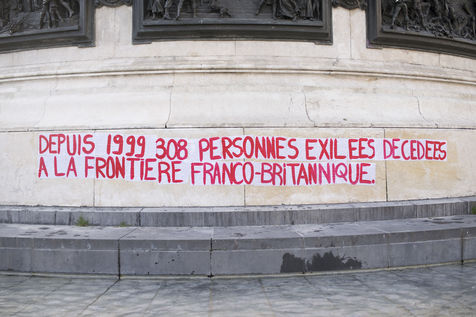 DEPUIS 1999 308 PERSONNES EXILEES DECEDEES
A LA FRONTIÈRE FRANCO-BRITANNIQUE.